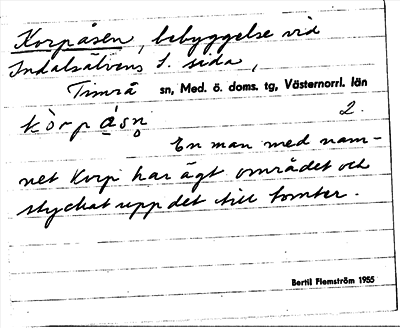 Korpåsen, bebyggelse vid
Indalsälvens S. sida,
Timrå sn, Med. ö. doms. tg, Västernorrl. län
kòrpásn̥ 2.
En man med nam-
net Korp har ägt området och
styckat upp det till tomter.
Bertil Flemström 1955